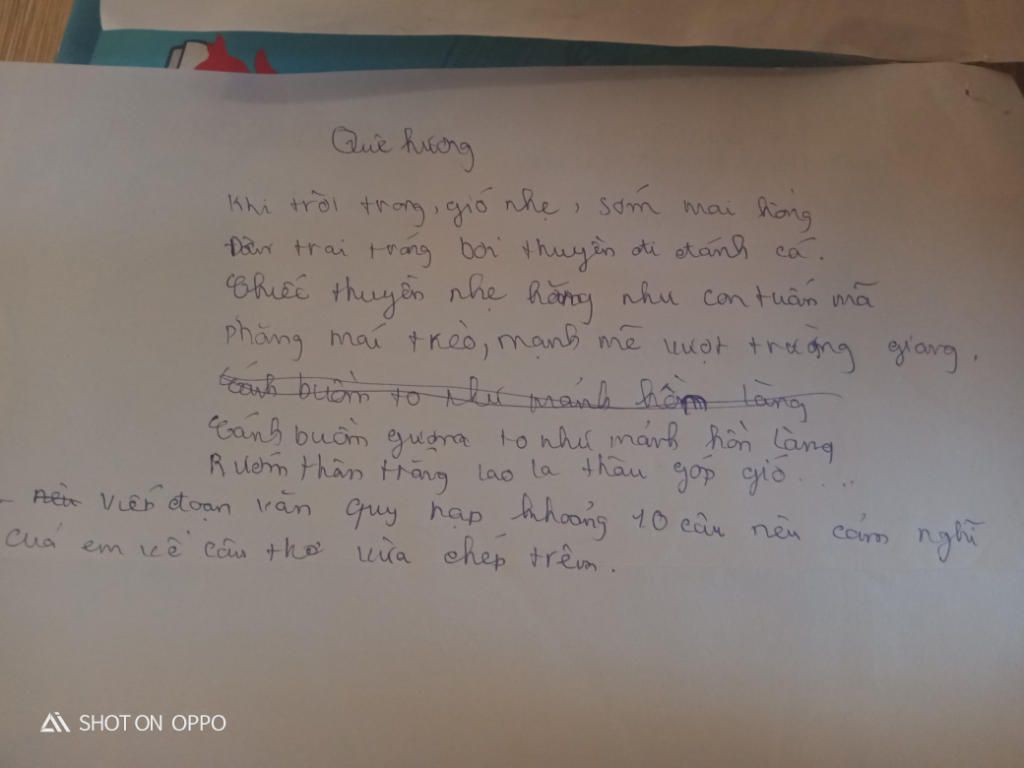 Quê hương
Khi trời trong, gió nhẹ, sớm mai hồng
Dân trai tráng bơi thuyền đi đánh cá.
Chiếc thuyền nhẹ hăng như con tuấn mã
Phăng mái trèo, mạnh mẽ vượt trường giang.
Cánh buồm to như mảnh hồn làng
Cánh buồm gương to như mảnh hồn làng
Rướn thân trắng bao la thâu góp gió....
- nêu viết đoạn văn quy nạp khoảng 10 câu nêu cảm nghĩ
của em về câu thơ vừa chép trên.
SHOT ON OPPO